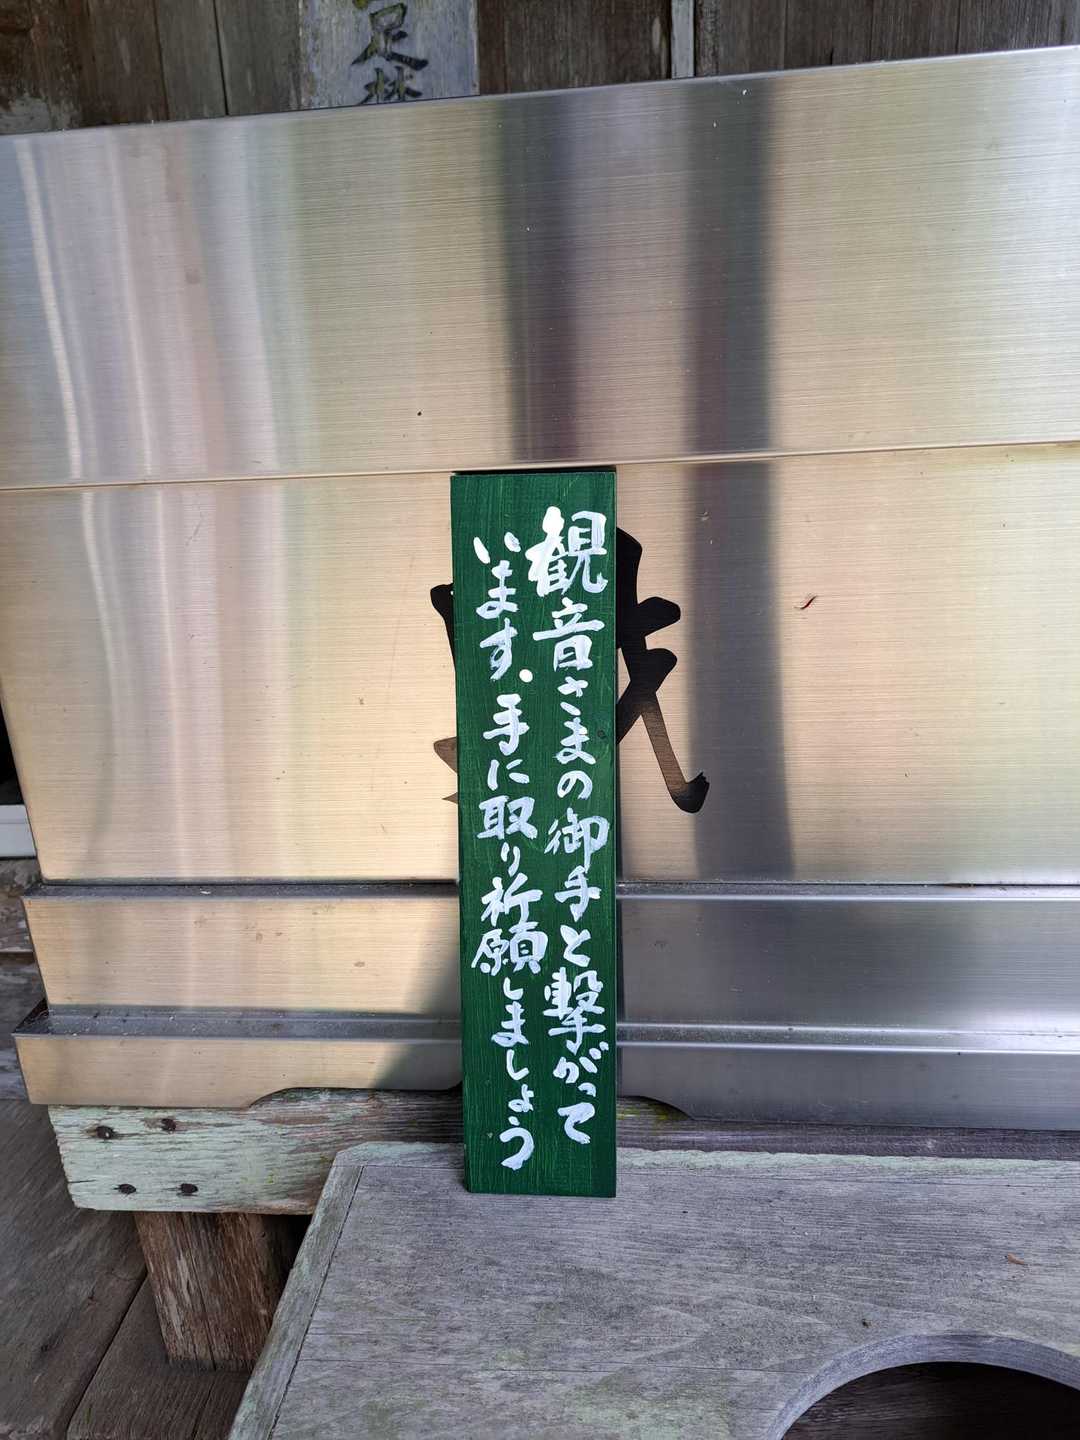 観音さまの御手と撃がって
います。手に取り祈願しましょう